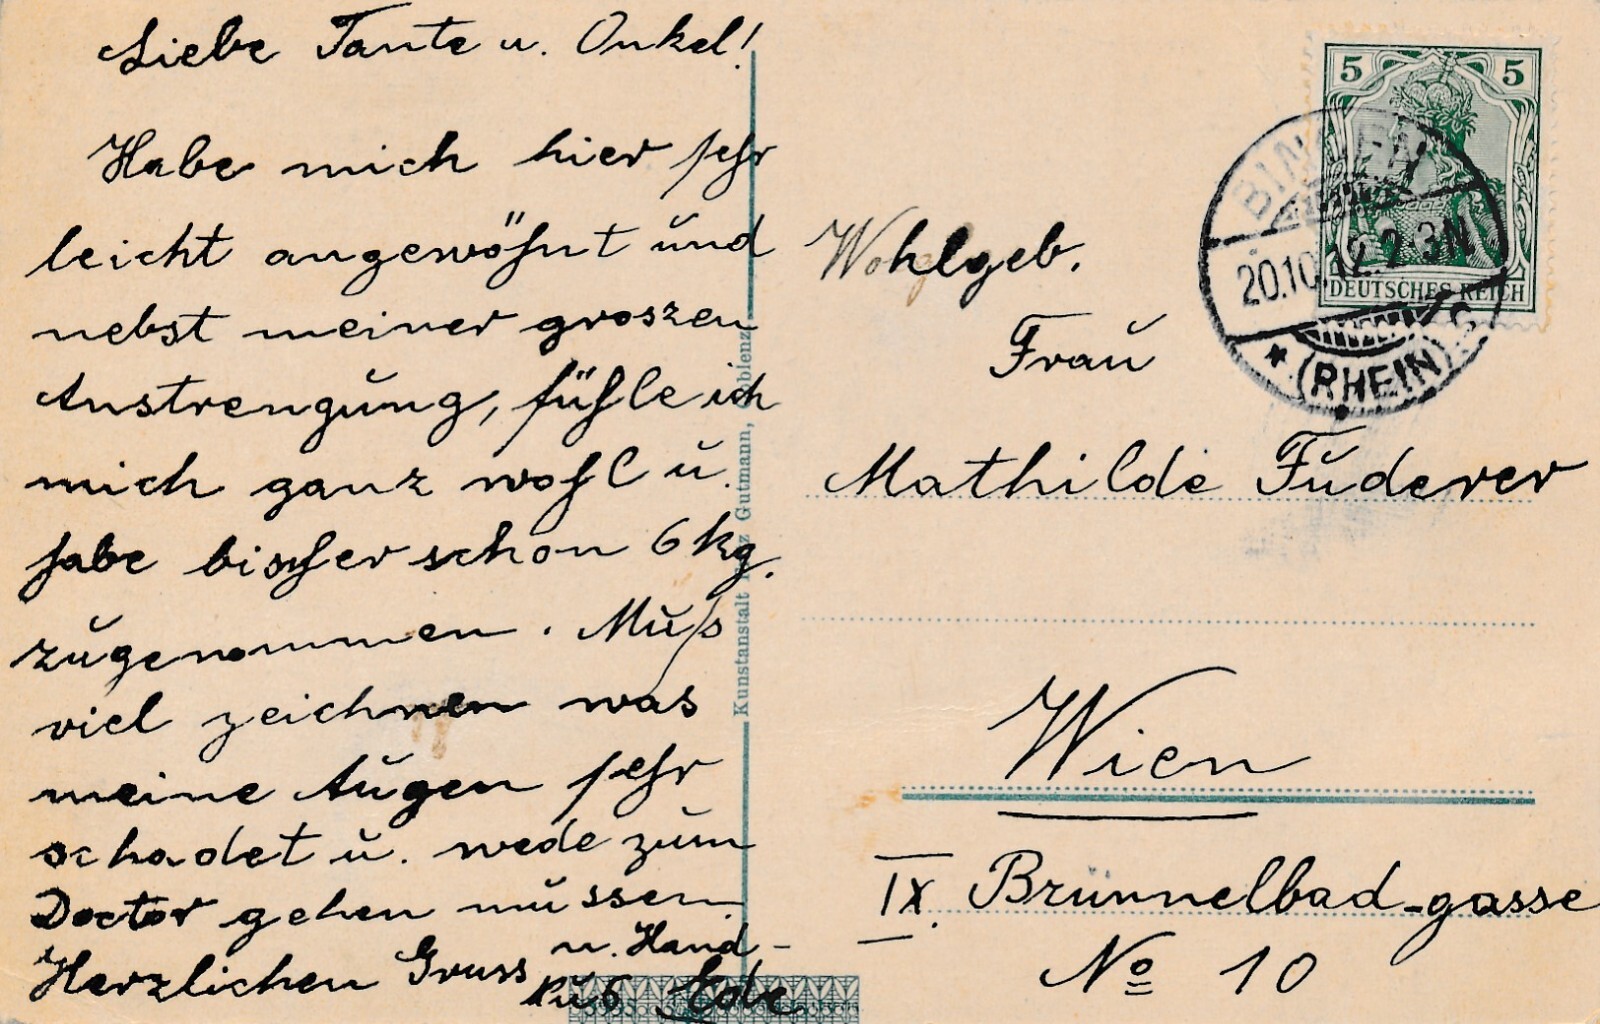 Liebe Tante u. Onkel!
Habe mich hier sehr
leicht angewöhnt und
nebst meiner groszen
Anstrengung, fühle ich
mich ganz wohl u.
habe bischer schon 6 kg.
zugenommen. Muss
viel zeichnen was
meine Augen sehr
schadet u. wede zum
Doctor gehen müssen.
Herzlichen Gruss u. Hand-
kuß Ede
Kunstanstalt Gutmann, Coblenz
5 5
DEUTSCHES REICH
BINGEN
20.10.12. 2-3N
(RHEIN)
Wohlgeb.
Frau
Mathilde Fuderer
Wien
IX. Brünnelbad-gasse
No 10